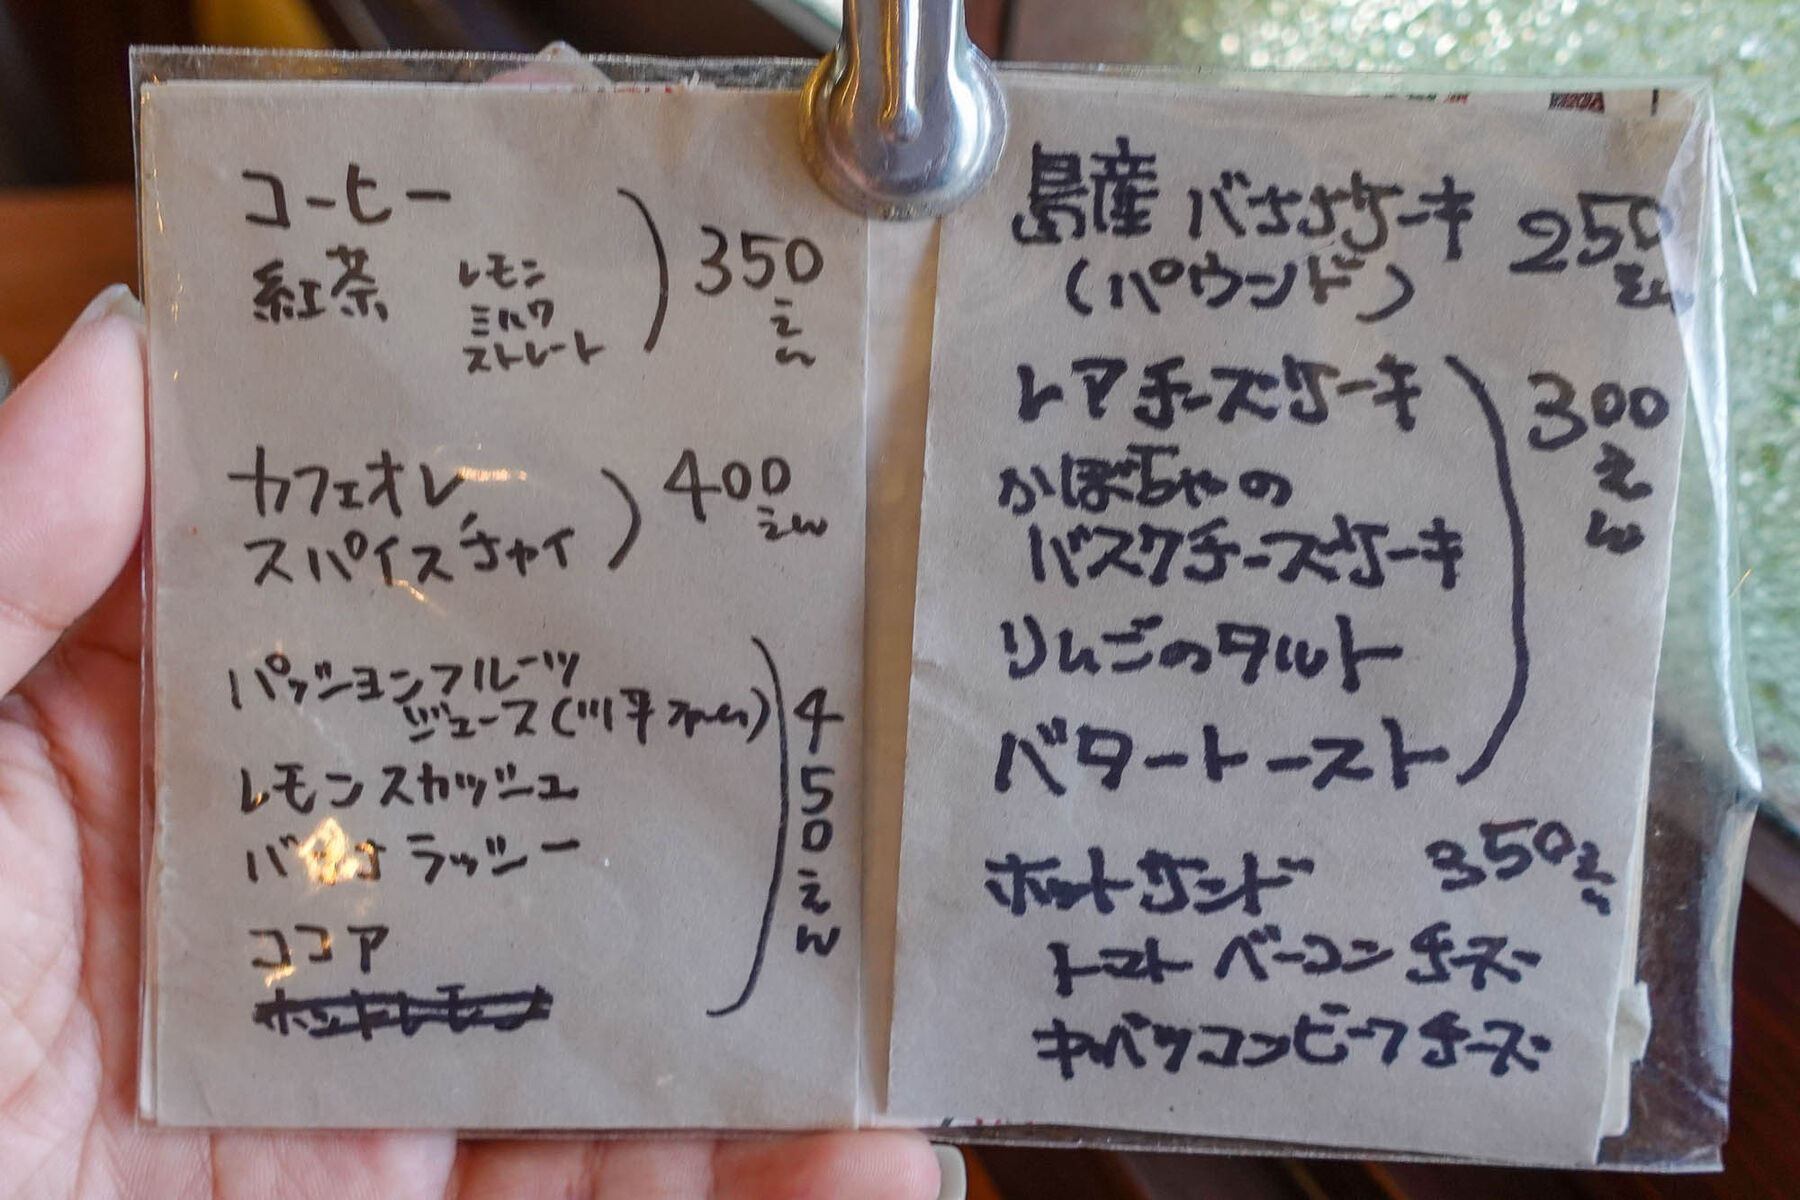 コーヒー
紅茶 レモン
ミルク
ストレート
350
えん
カフェオレ
スパイスチャイ
400
えん
パッションフルーツ
ジュース(
レモンスカッシュ
バナナラッシー
ココア
450えん
島産 バナナケーキ 250
(パウンド) えん
レアチーズケーキ
かぼちゃの
バスクチーズケーキ
りんごのタルト
バタートースト
300
えん
ホットサンド 350えん
トマト ベーコン チーズ
キャベツコンビーフチーズ